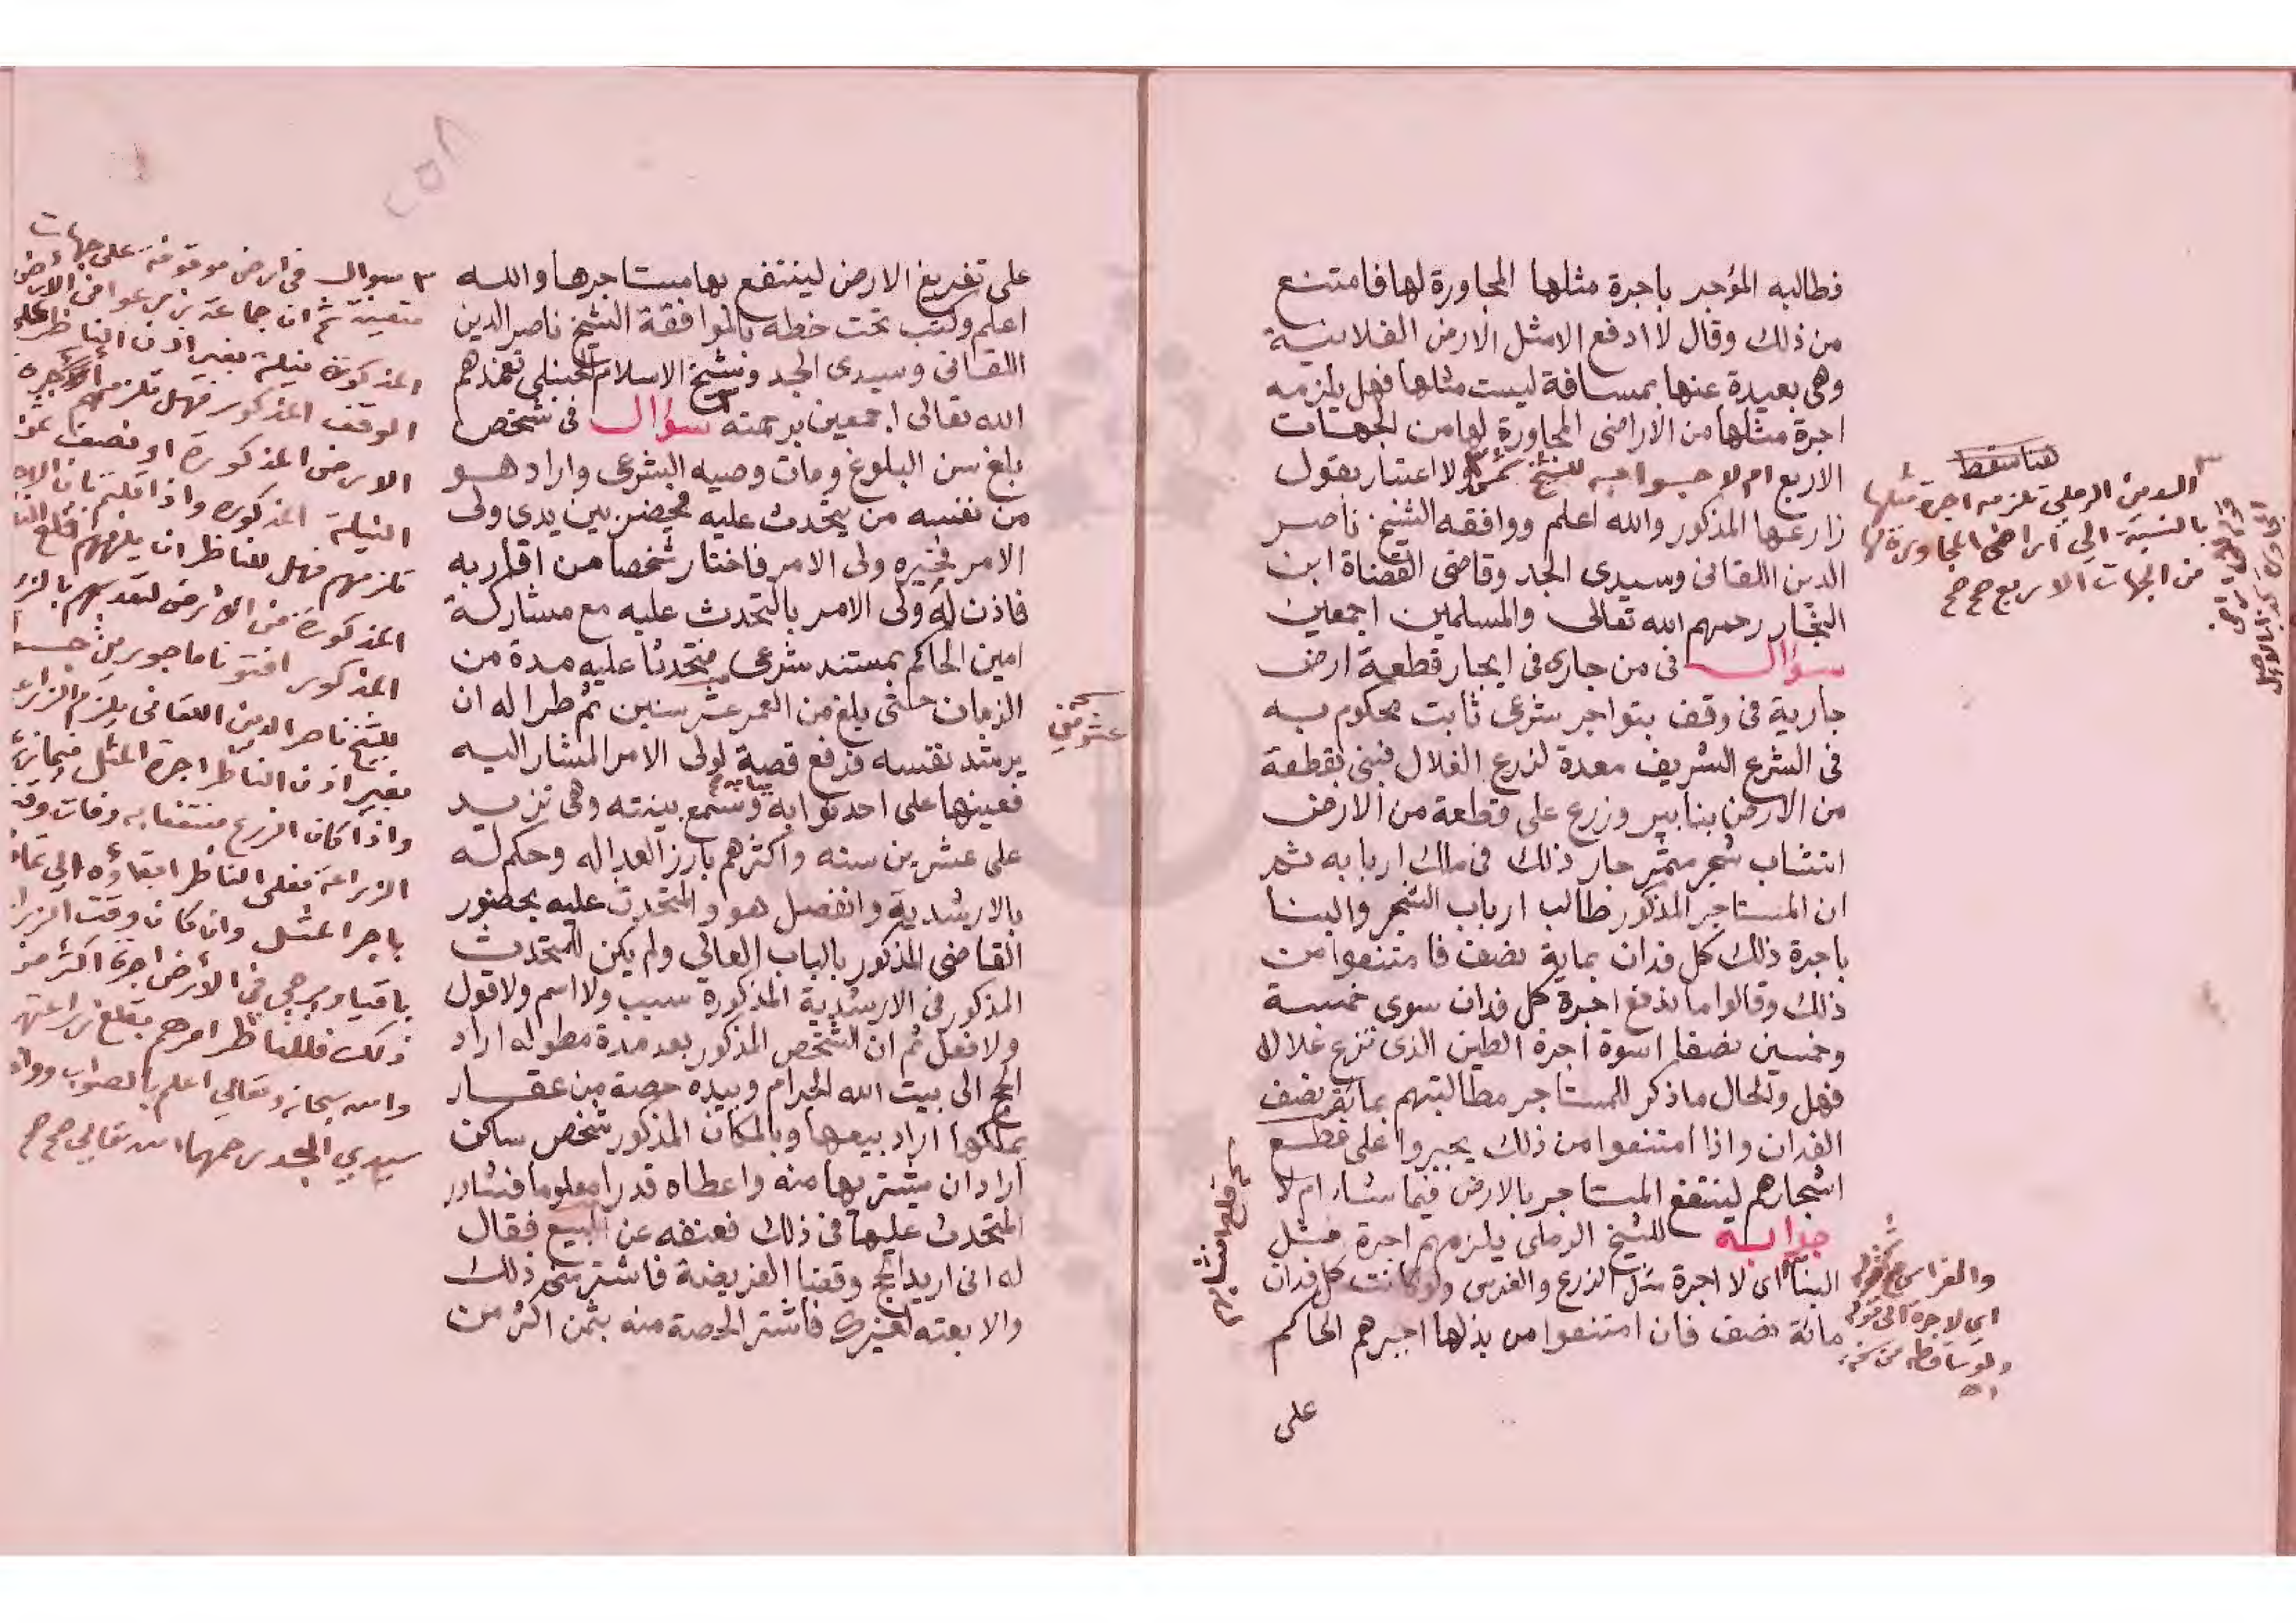 فطالبه المؤجر باجرة مثلها المجاورة لها فامتنع
من ذلك وقال لا ادفع الا مثل الارض الفلانية
وهى بعيدة عنها بمسافة ليست مثلها فهل يلزمه
اجرة مثلها من الاراضى المجاورة لها من الجهات
الاربع ام لا جوابه للشيخ شمس ولا اعتبار بقول
زارعها المذكور والله اعلم ووافقه الشيخ ناصر
الدين اللقانى وسيدى الجد وقاضى القضاة ابن
النجار رحمهم الله تعالى والمسلمين اجمعين
سؤال فى من جارى فى ايجار قطعة ارض
جارية فى وقف بتواجر شرعى ثابت محكوم به
فى الشرع الشريف معدة لزرع الغلال فبنى بقطعة
من الارض بنا بير وزرع على قطعة من الارض
انتشاب شجر مثمر جار ذلك فى ملك اربابه ثم
ان المستاجر المذكور طالب ارباب الشجر والبنا
باجرة ذلك كل فدان بماية نصف فامتنعوا من
ذلك وقالوا ما ندفع اجرة كل فدان سوى خمسة
وخمسين نصفا اسوة اجرة الطين الذى تزرع غلال
فهل والحال ما ذكر للمستاجر مطالبتهم بمائة نصف
الفدان واذا امتنعوا من ذلك يجبروا على قطع
اشجارهم لينتفع المستاجر بالارض فيما شاء ام لا
جوابه للشيخ الرملى يلزمهم اجرة مثل
البنا اى لا اجرة مثل الزرع والغرس ولو كانت كل فدان
مائة نصف فان امتنعوا من بذلها اجبرهم الحاكم
على
هنا سقط
الدين الرملي تلزمه اجرة مثلها
بالنسبة الي اراضي المجاورة لها
من الجهات الاربع صح صح
والغراس
اي لا اجرة الى قوله
ولو ساقطه من نسخة
اه
على تفريغ الارض لينتفع بها مستاجرها والله
اعلم وكتب تحت خطه بالموافقة الشيخ ناصر الدين
اللقانى وسيدى الجد وشيخ الاسلام الحنبلى تغمدهم
الله تعالى اجمعين برحمته سؤال فى شخص
بلغ سن البلوغ ومات وصيه الشرعى واراد هو
من نفسه من يتحدث عليه فحضر بين يدى ولى
الامر فخيره ولى الامر فاختار شخصا من اقاربه
فاذن له ولى الامر بالتحدث عليه مع مشاركة
امين الحاكم بمستند شرعى متحدثا عليه مدة من
الزمان حتى بلغ من العمر عشر سنين ثم طرا له ان
يرشد نفسه فرفع قصة لولى الامر المشار اليه
فعينها على احد نوابه وسمع بينته وهى تزيد
على عشرين سنه واكثرهم بارز العداله وحكم له
بالارشدية وانفصل هو والمتحدث عليه بحضور
القاضى المذكور بالباب العالي ولم يكن للمتحدث
المذكور فى الارشدية المذكورة سبب ولا اسم ولا قول
ولا فعل ثم ان الشخص المذكور بعد مدة مطوله اراد
الحج الى بيت الله الحرام وبيده حصة من عقار
يملكها اراد بيعها وبالمكان المذكور شخص ساكن
اراد ان يشتريها منه واعطاه قدرا معلوما فشاور
المتحدث عليها فى ذلك فعنفه عن البيع فقال
له انى اريد الحج وقضا الفريضة فاشتر منى ذلك
والا بعته لغيرك فاشتر الحصة منه بثمن اكثر من
سؤال في ارض موقوفة على جهات
متعينة ثم ان جماعة زرعوا في الارض
المذكورة نيلة بغير اذن الناظر على
الوقف المذكور فهل تلزمهم اجرة
الارض المذكورة او نصف
النيلة المذكورة واذا قلتم بان
تلزمهم فهل للناظر ان يلزمهم قلع
المذكورة من الارض لتعديهم بالزرع
المذكور افتونا ماجورين
للشيخ ناصر الدين اللقاني يلزم الزراع
بغير اذن الناظر اجرة المثل
واذا كان الزرع منتفعا به وفات وقت
الزراعة فعلى الناظر ابقاؤه الي تمام
باجرا لمثل وان كان وقت الزراعة
باقيا ويرجي في الارض اجرة اكثر من
ذلك فللناظر امرهم بقلع زراعتهم
والله سبحانه وتعالي اعلم بالصواب
سيدي الجد رحمهما الله تعالي صح صح